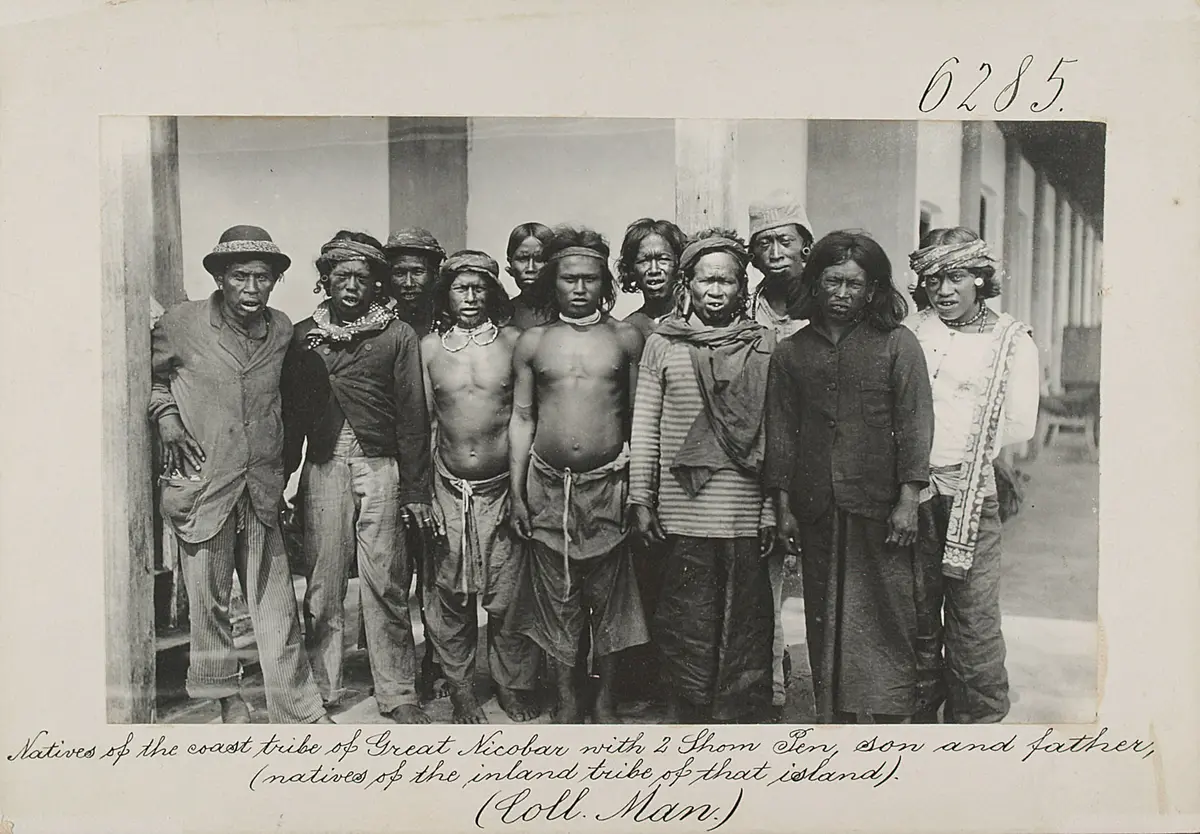 6285.
Natives of the coast tribe of Great Nicobar with 2 Shom Pen, son and father,
(natives of the inland tribe of that island).
(Coll. Man.)